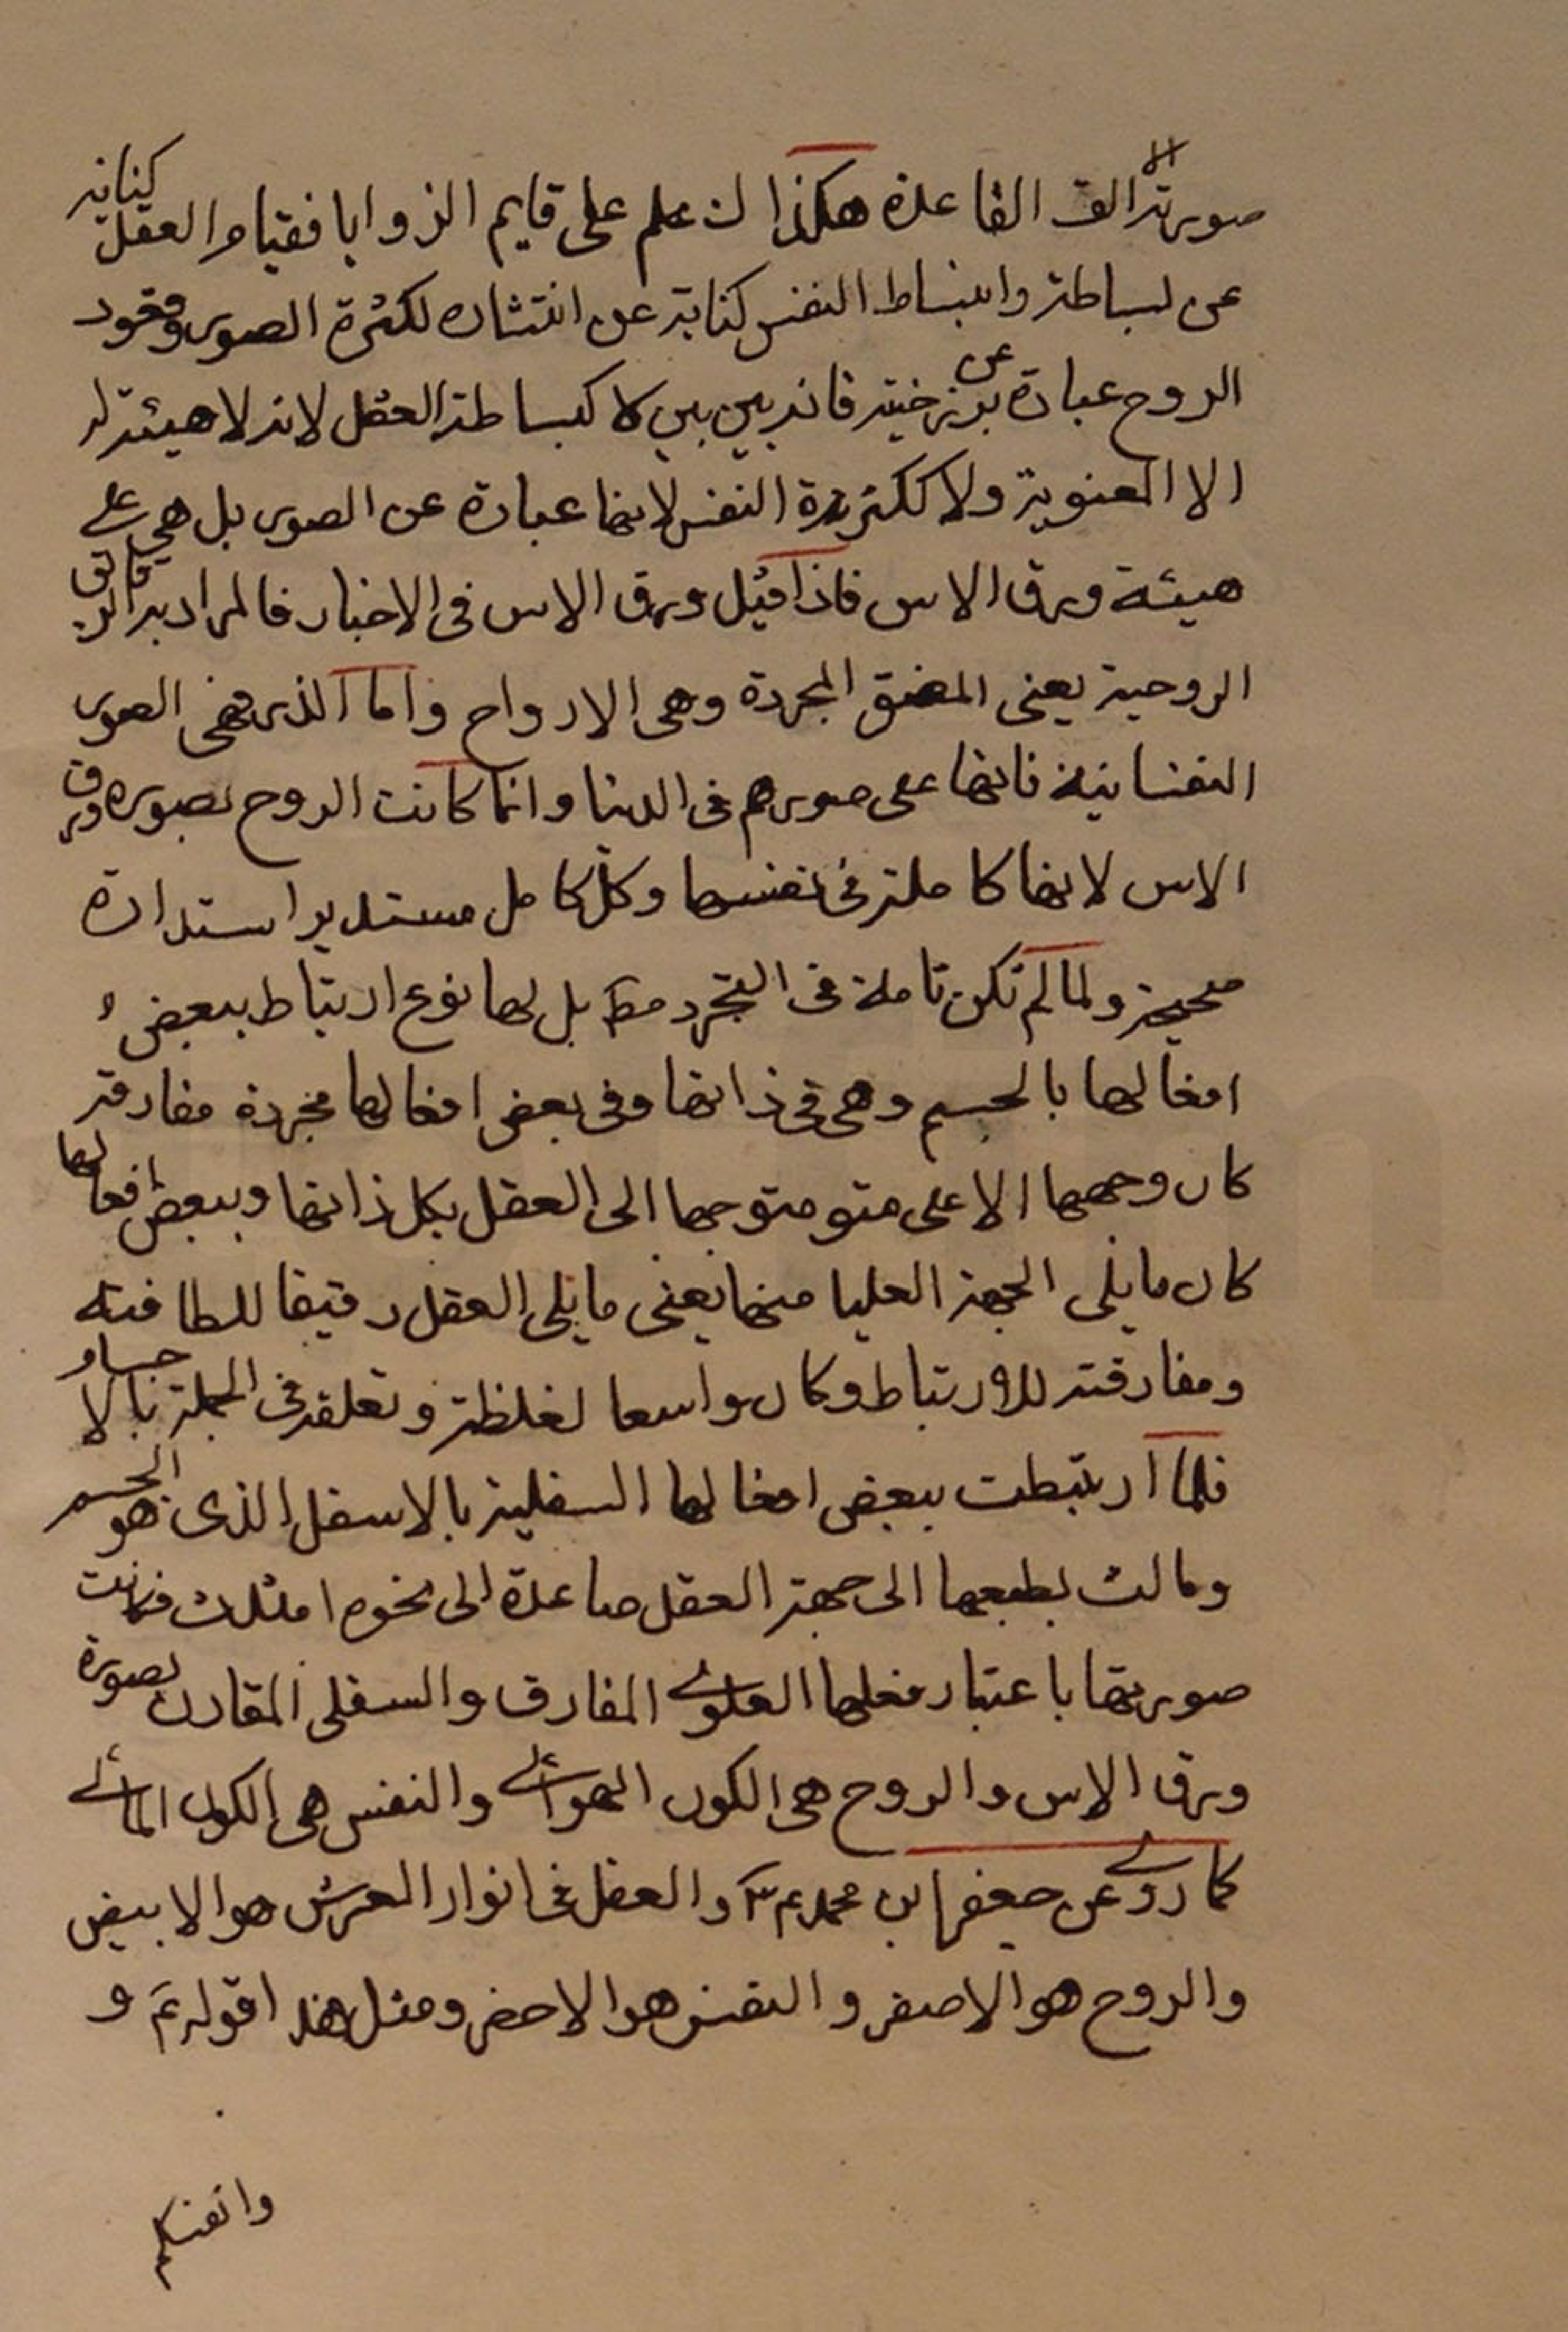 صورته الالف القاعدة هكذا لـ علم على قايم الزوايا فقيام العقل كناية
عن بساطته وانبساط النفس كناية عن انتشاره لكثرة الصور وقعود
الروح عبارة عن برزخيته فانه بين بين لا كبساطة العقل لانه لا هيئة له
الا المعنوية ولا ككثرة النفس لانها عبارة عن الصور بل هي على
هيئة ورق الاس فاذا قيل ورق الاس فى الاخبار فالمراد به الرقائق
الروحية يعنى المجردة وهى الارواح واما الذر فهى الصور
النفسانية فانها على صورهم فى الدنيا وانما كانت الروح بصورة ورق
الاس لانها كاملة فى نفسها وكل كامل مستدير استدارة
صحيحة ولما لم تكن تاملة فى التجرد مط بل لها نوع ارتباط ببعض
افعالها بالجسم وهى فى ذاتها وفى بعض افعالها مجردة مفارقة
كان وجهها الاعلى متو متوجها الى العقل بكل ذاتها وببعض افعالها
كان ما يلى الجهة العليا منها يعنى ما يلى العقل رقيقا للطافته
ومفارقته للارتباط وكان واسعا لغلظته وتعلقه فى الجملة بالاجسام
فلما ارتبطت ببعض افعالها السفلية بالاسفل الذى هو الجسم
ومالت بطبعها الى جهة العقل صاعدة الى نحوه فكانت
صورتها باعتبار فعلها العلوى المفارق والسفلى المقارن بصورة
ورق الاس والروح هى الكون الهوائى والنفس هى الكون المائى
كما روى عن جعفر ابن محمد ع م والعقل فى انوار العرش هو الابيض
والروح هو الاصفر والنفس هو الاخضر ومثل هذا قوله تع و
وانفسكم